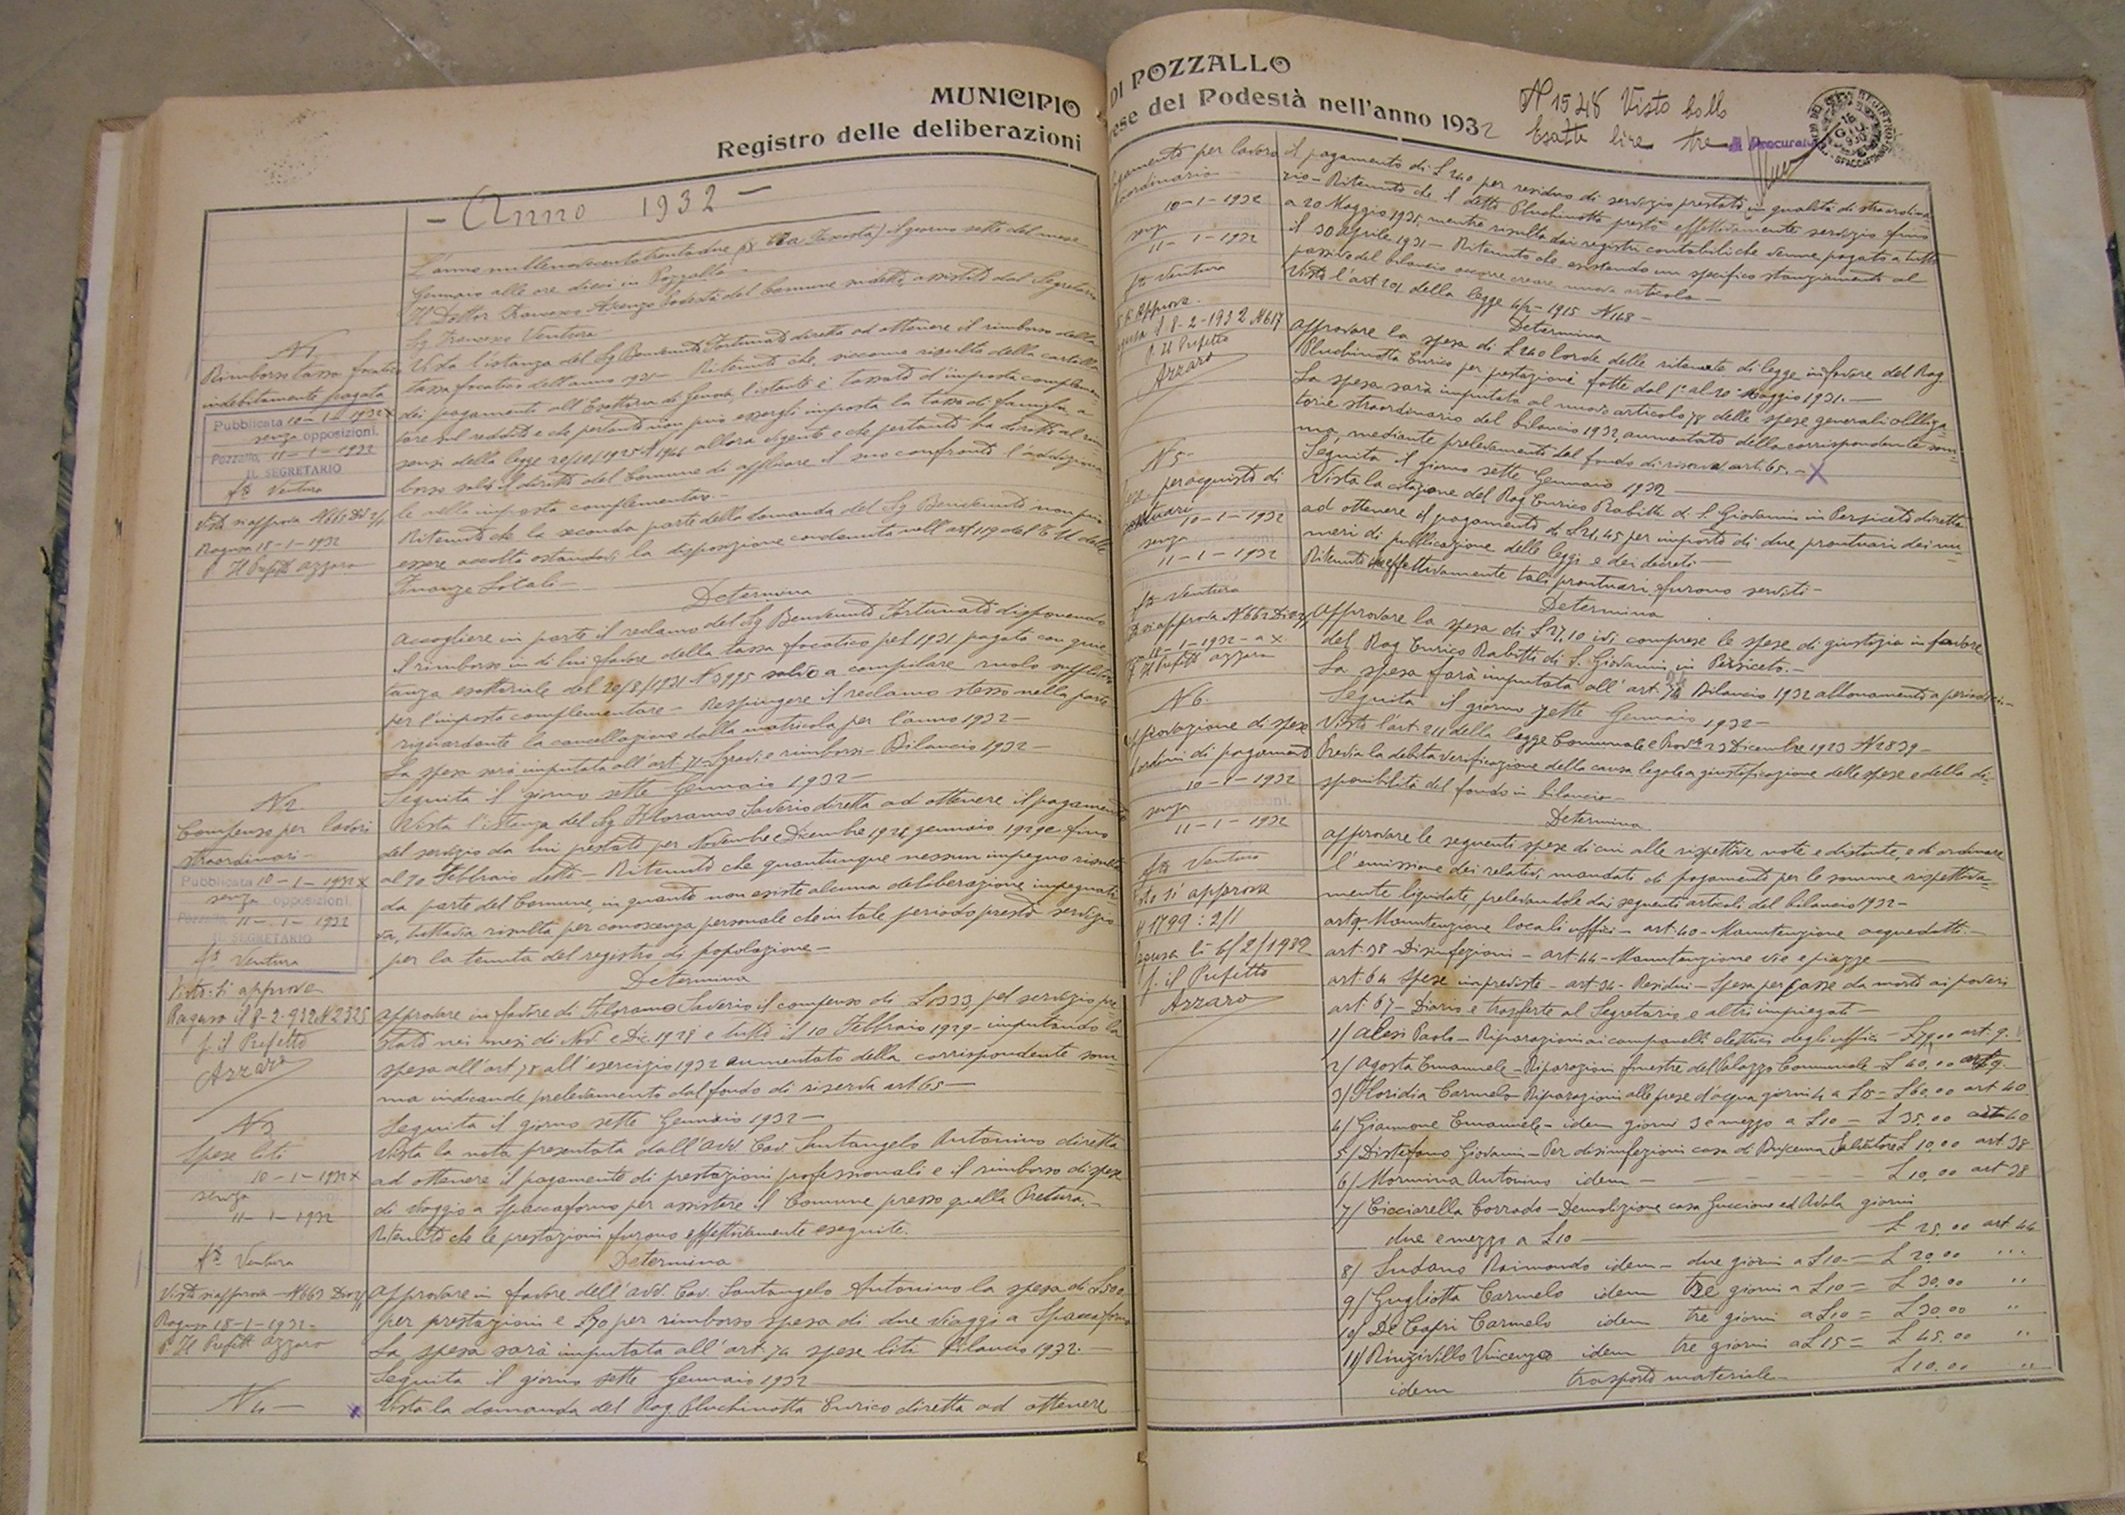 MUNICIPIO DI POZZALLO
Registro delle deliberazioni prese del Podestà nell'anno 1932
N 1548 Visto bollo
Esatte lire tre
Procuratore
- Anno 1932 -
L'anno millenovecentotrentadue il giorno sette del mese
Gennaio alle ore dieci in Pozzallo
Il Dottor Francesco Podestà del Comune suddetto, assistito dal Segretario
Sig Francesco Ventura
N 1
Rimborso tassa focatico
indebitamente pagata
Pubblicata 10-1-1932 x
senza opposizioni.
Pozzallo, 11-1-1932
IL SEGRETARIO
fto Ventura
Visto si approva N 665
Ragusa 18-1-1932
p. Il Prefetto Azzaro
Vista l'istanza del Sig Benvenuto Fortunato diretta ad ottenere il rimborso della
tassa focatico dell'anno 1931 - Ritenuto che, siccome risulta della cartella
dei pagamenti all'Esattoria di Genova, l'istante è tassato d'imposta complemen
tare sul reddito e che pertanto non può essergli imposta la tassa di famiglia a
sensi della legge allora vigente e che pertanto ha diritto al rim
borso salvo il diritto del Comune di applicare il suo confronto l'addiziona
le nella imposta complementare -
Ritenuto che la seconda parte della domanda del Sig Benvenuto non può
essere accolta ostandovi la disposizione contenuta nell'art 119 del T U della
Finanza Locale -
Determina
Accogliere in parte il reclamo del Sig Benvenuto Fortunato disponendo
il rimborso in di lui favore della tassa focatico pel 1931, pagata con quie
tanza esattoriale del 20/8/1931 N 3995 salvo a compilare ruolo suppletivo
per l'imposta complementare - Respingere il reclamo stesso nella parte
riguardante la cancellazione dalla matricola per l'anno 1932 -
La spesa sarà imputata all'art 71 Sgravi e rimborsi - Bilancio 1932 -
Seguita il giorno sette Gennaio 1932 -
N 2
Compenso per lavori
straordinari -
Pubblicata 10-1-1932 x
senza opposizioni.
Pozzallo, 11-1-1932
IL SEGRETARIO
fto Ventura
Visto: Si approva
Ragusa il 8-2-932 N 2325
p. il Prefetto
Azzaro
Vista l'istanza del Sig Iloramo Saverio diretta ad ottenere il pagamento
del servizio da lui prestato per Novembre e Dicembre 1928 gennaio 1929 e fino
al 10 Febbraio detto - Ritenuto che quantunque nessun impegno risulta
da parte del Comune, in quanto non esiste alcuna deliberazione impegnati
va, tuttavia risulta per conoscenza personale che in tale periodo prestò servizio
per la tenuta del registro di popolazione -
Determina
Approvare in favore di Saverio il compenso di L 333 pel servizio pre
stato nei mesi di Nov e Dic. 1928 e tutto il 10 Febbraio 1929 - imputando la
spesa all'art 78 all'esercizio 1932 aumentato della corrispondente som
ma indicande prelevamento dal fondo di riserva art 65 -
Seguita il giorno sette Gennaio 1932 -
N 3
Spese liti
10-1-1932 x
senza
11-1-1932
fto Ventura
Visto si approva - N 663
Ragusa 18-1-1932 -
p. Il Prefetto Azzaro
Vista la nota presentata dall'avv. Cav. Santangelo Antonino diretta
ad ottenere il pagamento di prestazioni professionali e il rimborso di spese
di viaggio a Spaccaforno per assistere il Comune presso quella Pretura. -
Ritenuto che le prestazioni furono effettivamente eseguite.
Determina
Approvare in favore dell'avv. Cav. Santangelo Antonino la spesa di L 500
per prestazioni e L 70 per rimborso spesa di due viaggi a Spaccaforno
La spesa sarà imputata all'art. 74 spese liti bilancio 1932. -
Seguita il giorno sette Gennaio 1932
N 4 -
Vista la domanda del Rag Pluchinotta Enrico diretta ad ottenere
Pagamento per lavoro
straordinario -
10-1-1932
senza
11-1-1932
fto Ventura
Si Approva.
Ragusa il 8-2-1932 N 617
p. Il Prefetto
Azzaro
il pagamento di L 240 per residuo di servizio prestato in qualità di straordina
rio - Ritenuto che il detto Pluchinotta prestò effettivamente servizio fino
a 20 Maggio 1931, mentre risulta dai registri contabili che venne pagato a tutto
il 30 Aprile 1931 - Ritenuto che esistendo un specifico stanziamento al
passivo del bilancio occorre creare nuovo articolo -
Visto l'art 201 della legge 4/2 - 1915 N 148 -
Determina
Approvare la spesa di L 240 lorde delle ritenute di legge in favore del Rag.
Pluchinotta Enrico per prestazioni fatte dal 1° al 20 Maggio 1931. -
La spesa sarà imputata al nuovo articolo 78 delle spese generali obbliga=
torie straordinarie del bilancio 1932, aumentato della corrispondente som=
ma, mediante prelevamento dal fondo di riserva art. 65. - X
Seguita il giorno sette Gennaio 1932
N 5 -
Spese per acquisto di
prontuari
10-1-1932
senza
11-1-1932
fto Ventura
Visto si approva N 662
18-1-1932 - a X.
p. Il Prefetto Azzaro
Vista la citazione del Rag Enrico Rabitti di S. Giovanni in Persiceto diretta
ad ottenere il pagamento di L 21,45 per importo di due prontuari dei nu=
meri di pubblicazione delle leggi e dei decreti -
Ritenuto che effettivamente tali prontuari furono serviti -
Determina
Approvare la spesa di L 27,10 ivi comprese le spese di giustizia in favore
del Rag Enrico Rabitti di S. Giovanni in Persiceto. -
La spesa sarà imputata all'art. Bilancio 1932 abbonamento a periodici. -
Seguita il giorno sette Gennaio 1932 -
N 6.
Approvazione di spese
e ordini di pagamento
10-1-1932
senza opposizioni.
11-1-1932
fto Ventura
Visto si approva
N 1799: 2/1
Ragusa li 6/2/1932
p. il Prefetto
Azzaro
Visto l'art. 211 della legge Comunale e Prov.le 23 Dicembre 1923 N 2839 -
Previa la debita verificazione della causa legale a giustificazione delle spese e della di=
sponibilità del fondo in bilancio -
Determina
Approvare le seguenti spese di cui alle rispettive note e distinte, e di ordinare
l'emissione dei relativi mandati di pagamento per le somme rispettiva=
mente liquidate, prelevandole dai seguenti articoli del bilancio 1932 -
art 9 - Manutenzione locali uffici - art. 40 - Manutenzione acquedotti. -
art. 38 Disinfezioni - art. 44 - Manutenzione vie e piazze -
art. 64 Spese impreviste - art. 34 - Residui - Spesa per casse da morto ai poveri
art. 67 - Diarie e trasferte al Segretario e altri impiegati -
1/ Alesi Paolo - Riparazioni ai campanelli elettrici degli uffici - L 79,00 art. 9.
2/ Agosta Emanuele - Riparazioni finestre del Palazzo Comunale - L 40,00 art 9.
3/ Floridia Carmelo - Riparazioni alle prese d'acqua giorni 4 a L 15 = L 60,00 art 40
4/ Giannone Emanuele - idem giorni 3 e mezzo a L 10 - L 35,00 art 40
5/ Distefano Giovanni - Per disinfezioni casa di Salvatore L 10,00 art. 38
6/ Mormina Antonino idem - L 10,00 art 38
7/ Cicciarella Corrado - Demolizione casa Guccione ed Avola giorni
due e mezzo a L 10 - L 25,00 art 44
8/ Sudano Raimondo idem - due giorni a L 10 - = L 20,00 "
9/ Gugliotta Carmelo idem tre giorni a L 10 = L 30,00 "
10/ De Capri Carmelo idem tre giorni a L 10 = L 30,00 "
11/ Rinzivillo Vincenzo idem tre giorni a L 15 = L 45,00 "
idem trasporto materiale - L 10,00 "